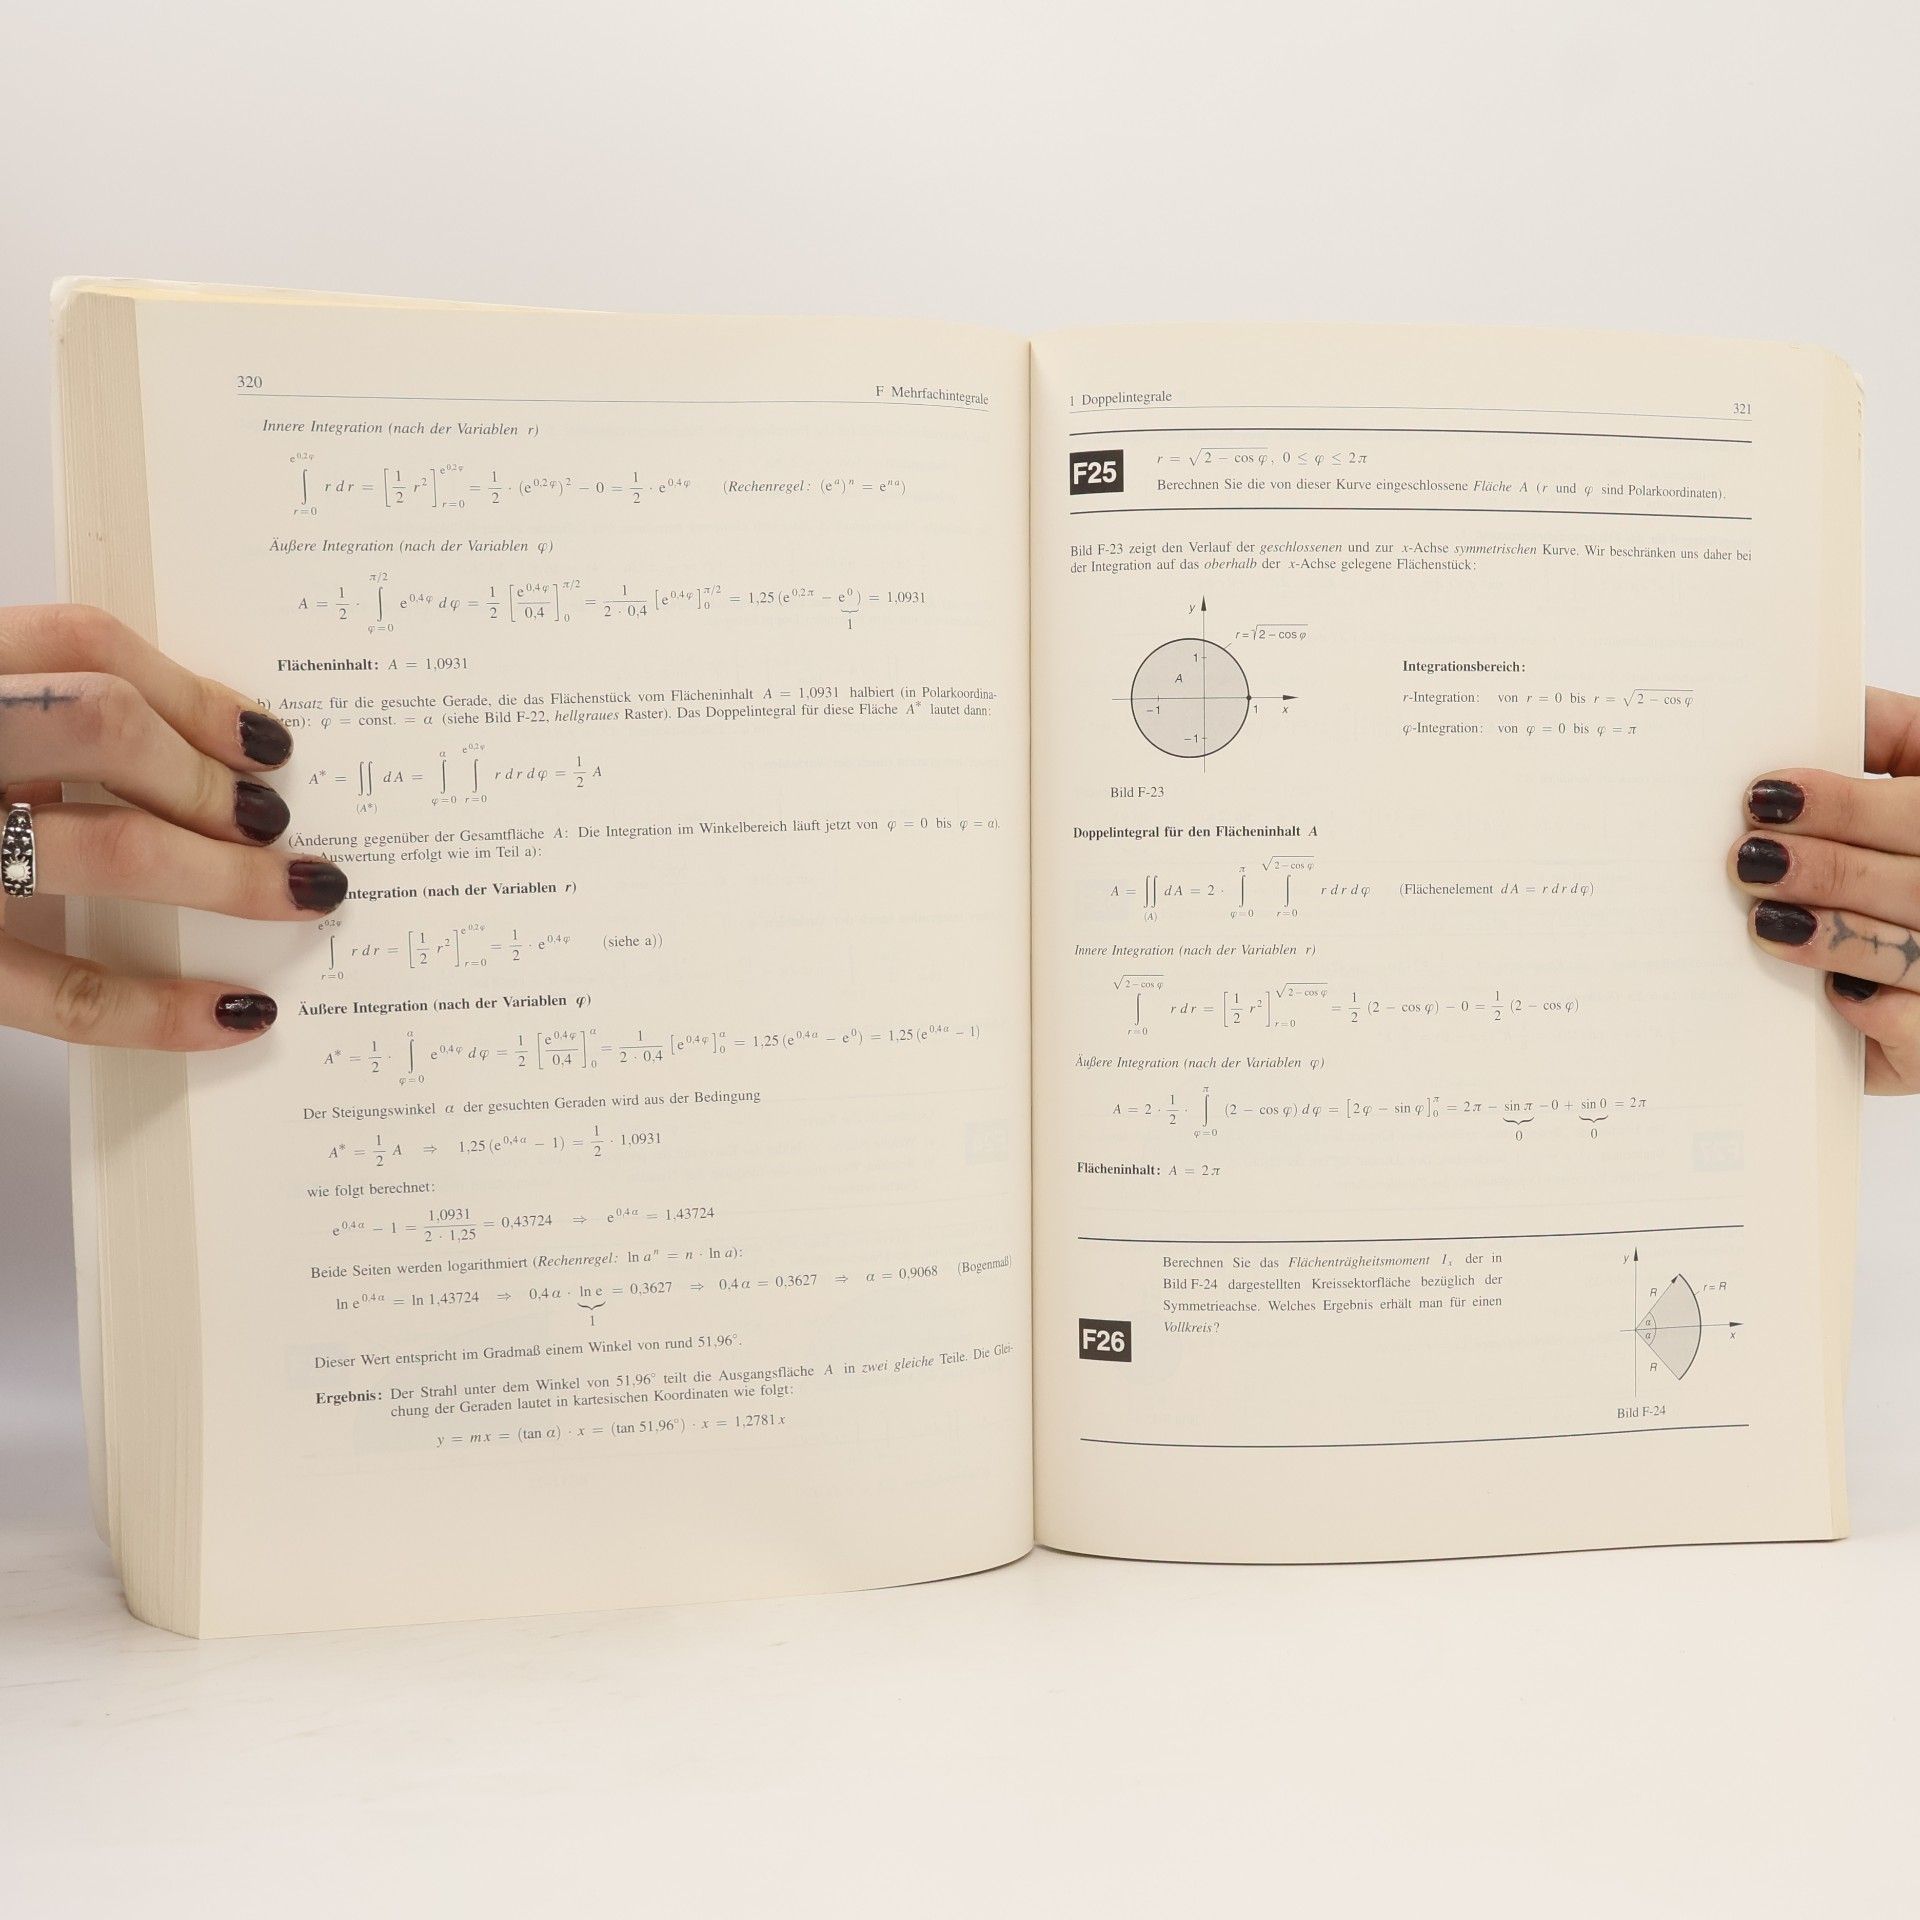 320
F Mehrfachintegrale
Innere Integration (nach der Variablen r)
∫_{r=0}^{e^{0,2φ}} r dr = [1/2 r²]_{r=0}^{e^{0,2φ}} = 1/2 · (e^{0,2φ})² − 0 = 1/2 · e^{0,4φ} (Rechenregel: (e^a)^n = e^{na})
Äußere Integration (nach der Variablen φ)
A = 1/2 · ∫_{φ=0}^{π/2} e^{0,4φ} dφ = 1/2 [e^{0,4φ}/0,4]_0^{π/2} = 1/(2 · 0,4) [e^{0,4φ}]_0^{π/2} = 1,25 (e^{0,2π} − e^0) = 1,0931
1
Flächeninhalt: A = 1,0931
b) Ansatz für die gesuchte Gerade, die das Flächenstück vom Flächeninhalt A = 1,0931 halbiert (in Polarkoordina-
ten): φ = const. = α (siehe Bild F-22, hellgraues Raster). Das Doppelintegral für diese Fläche A* lautet dann:
A* = ∬_{(A*)} dA = ∫_{φ=0}^{α} ∫_{r=0}^{e^{0,2φ}} r dr dφ = 1/2 A
(Änderung gegenüber der Gesamtfläche A: Die Integration im Winkelbereich läuft jetzt von φ = 0 bis φ = α).
Auswertung erfolgt wie im Teil a):
ntegration (nach der Variablen r)
∫_{r=0}^{e^{0,2φ}} r dr = [1/2 r²]_{r=0}^{e^{0,2φ}} = 1/2 · e^{0,4φ} (siehe a))
Äußere Integration (nach der Variablen φ)
A* = 1/2 · ∫_{φ=0}^{α} e^{0,4φ} dφ = 1/2 [e^{0,4φ}/0,4]_0^{α} = 1/(2 · 0,4) [e^{0,4φ}]_0^{α} = 1,25 (e^{0,4α} − e^0) = 1,25 (e^{0,4α} − 1)
Der Steigungswinkel α der gesuchten Geraden wird aus der Bedingung
A* = 1/2 A ⇒ 1,25 (e^{0,4α} − 1) = 1/2 · 1,0931
wie folgt berechnet:
e^{0,4α} − 1 = 1,0931/(2 · 1,25) = 0,43724 ⇒ e^{0,4α} = 1,43724
Beide Seiten werden logarithmiert (Rechenregel: ln a^n = n · ln a):
ln e^{0,4α} = ln 1,43724 ⇒ 0,4α · ln e = 0,3627 ⇒ 0,4α = 0,3627 ⇒ α = 0,9068 (Bogenmaß)
1
Dieser Wert entspricht im Gradmaß einem Winkel von rund 51,96°.
Ergebnis: Der Strahl unter dem Winkel von 51,96° teilt die Ausgangsfläche A in zwei gleiche Teile. Die Glei-
chung der Geraden lautet in kartesischen Koordinaten wie folgt:
y = mx = (tan α) · x = (tan 51,96°) · x = 1,2781x
1 Doppelintegrale
321
F25
r = √(2 − cos φ), 0 ≤ φ ≤ 2π
Berechnen Sie die von dieser Kurve eingeschlossene Fläche A (r und φ sind Polarkoordinaten).
Bild F-23 zeigt den Verlauf der geschlossenen und zur x-Achse symmetrischen Kurve. Wir beschränken uns daher bei
der Integration auf das oberhalb der x-Achse gelegene Flächenstück:
y
r = √(2 − cos φ)
1
A
−1
1
x
−1
Bild F-23
Integrationsbereich:
r-Integration: von r = 0 bis r = √(2 − cos φ)
φ-Integration: von φ = 0 bis φ = π
Doppelintegral für den Flächeninhalt A
A = ∬_{(A)} dA = 2 · ∫_{φ=0}^{π} ∫_{r=0}^{√(2−cos φ)} r dr dφ (Flächenelement dA = r dr dφ)
Innere Integration (nach der Variablen r)
∫_{r=0}^{√(2−cos φ)} r dr = [1/2 r²]_{r=0}^{√(2−cos φ)} = 1/2 (2 − cos φ) − 0 = 1/2 (2 − cos φ)
Äußere Integration (nach der Variablen φ)
A = 2 · 1/2 · ∫_{φ=0}^{π} (2 − cos φ) dφ = [2φ − sin φ]_0^π = 2π − sin π − 0 + sin 0 = 2π
0 0
Flächeninhalt: A = 2π
F26
Berechnen Sie das Flächenträgheitsmoment I_x der in
Bild F-24 dargestellten Kreissektorfläche bezüglich der
Symmetrieachse. Welches Ergebnis erhält man für einen
Vollkreis?
y
R
r = R
α
α
x
R
Bild F-24